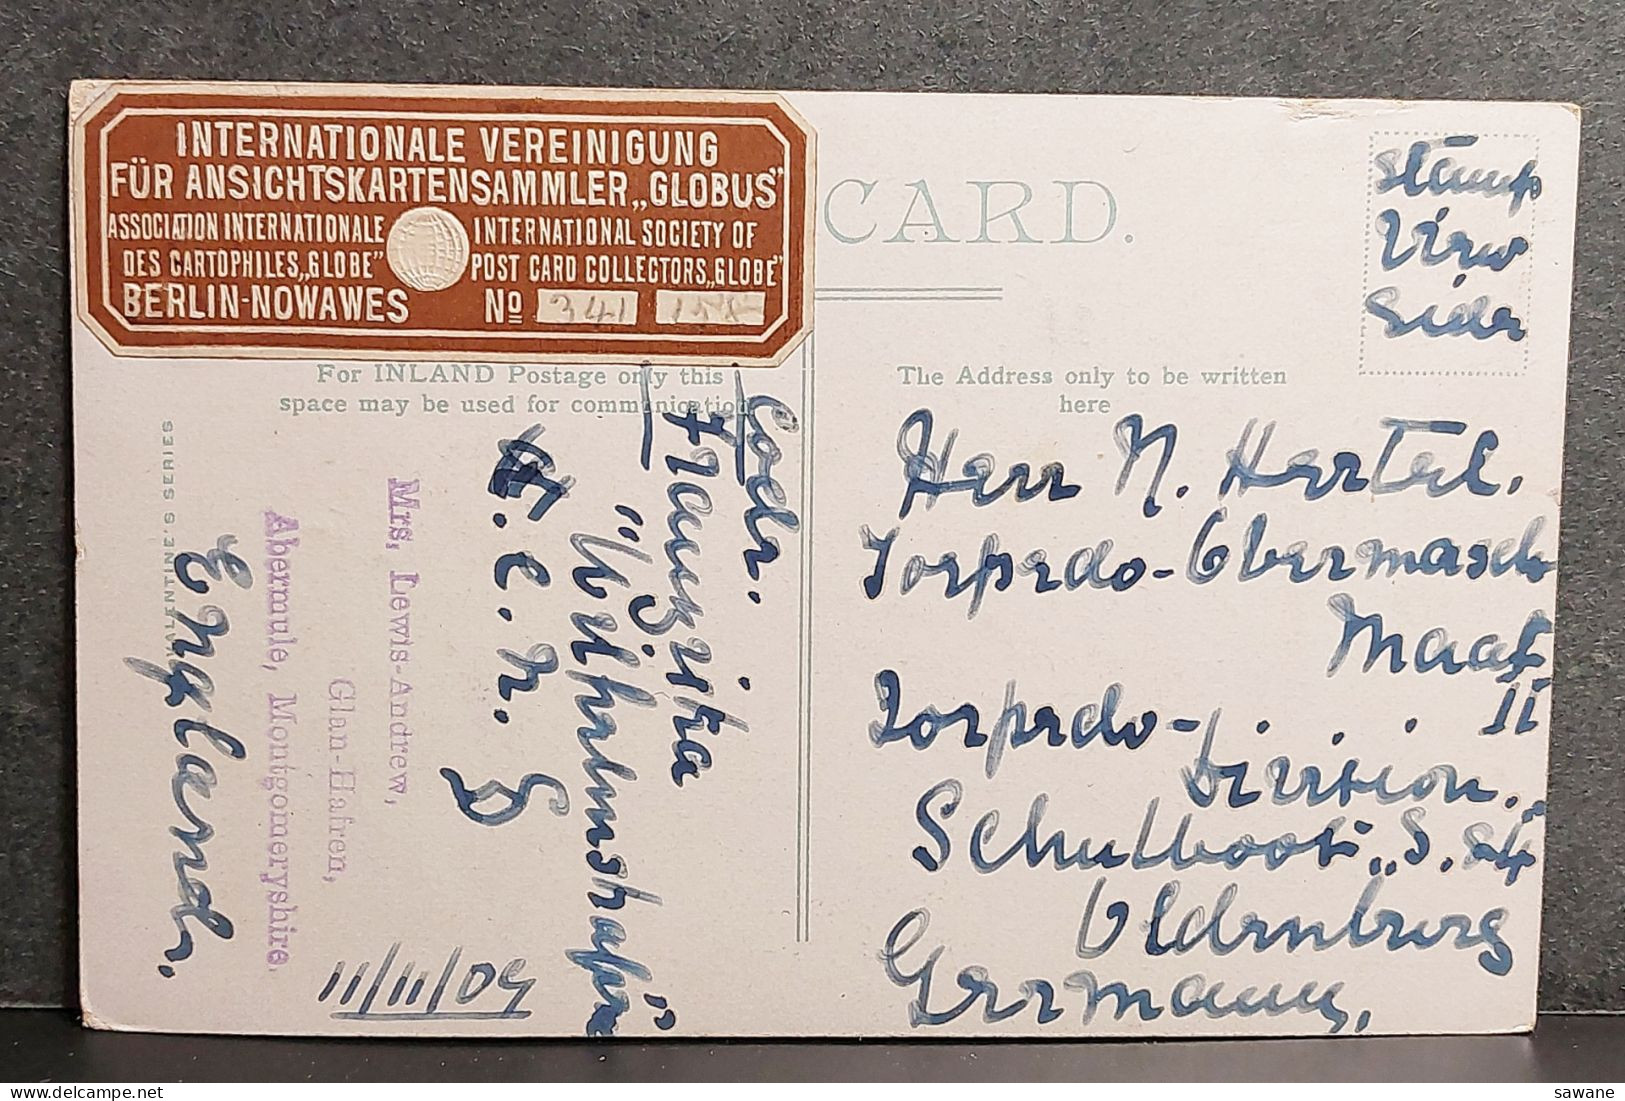 INTERNATIONALE VEREINIGUNG
FÜR ANSICHTSKARTENSAMMLER „GLOBUS”
ASSOCIATION INTERNATIONALE
DES CARTOPHILES „GLOBE”
INTERNATIONAL SOCIETY OF
POST CARD COLLECTORS „GLOBE”
BERLIN-NOWAWES
No 341
CARD.
Stamp
View
Side
For INLAND Postage only this
space may be used for communication
The Address only to be written
here
VALENTINE'S SERIES
Herr N. Hertel.
Torpedo-Obermasch
Maat
Torpedo- II
Division.
Schulboot „S.
Oldenburg
Germany,
Coeln.
"Wilhelmshafen"
Mrs, Lewis-Andrew,
Glan-Hafren,
Abermule, Montgomeryshire,
England.